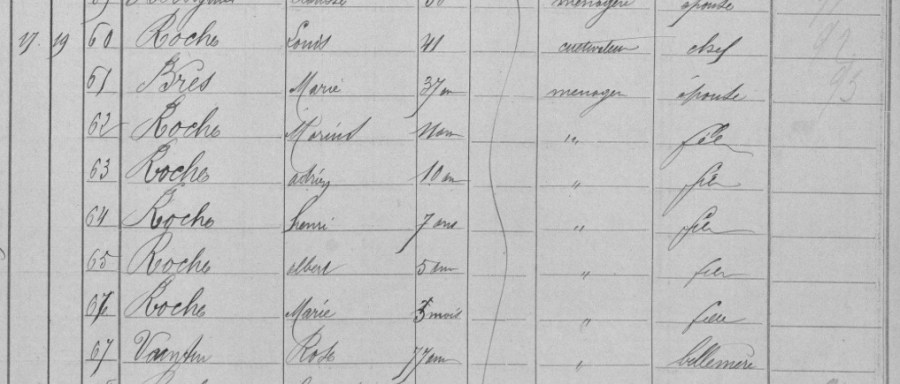 ménagère épouse
17 19 60 Roche Louis 41 cultivateur chef
61 Brès Marie 37 an menager épouse
62 Roche Marius 11 ans " fils
63 Roche adrien 10 an " fils
64 Roche henri 7 ans " fils
65 Roche albert 5 an " fils
66 Roche Marie 5 mois " fille
67 Valentin Rose 77 ans " bellemère